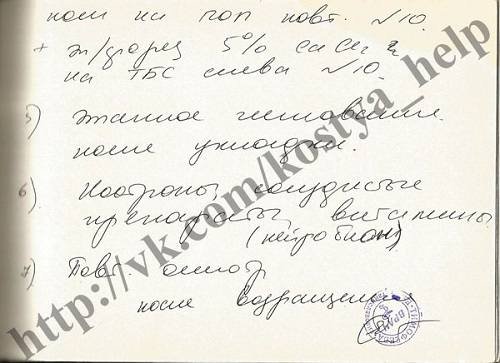 на поп повт. №10.
+ эл/форез 5% CaCl2
на ТБС слева №10.
5) Этапное гипсование
после укладки.
6). Ноотропы, сосудистые
препараты, витамины
(нейробион)
7) Повт. осмотр
после возвращения
http://vk.com/kostya_help